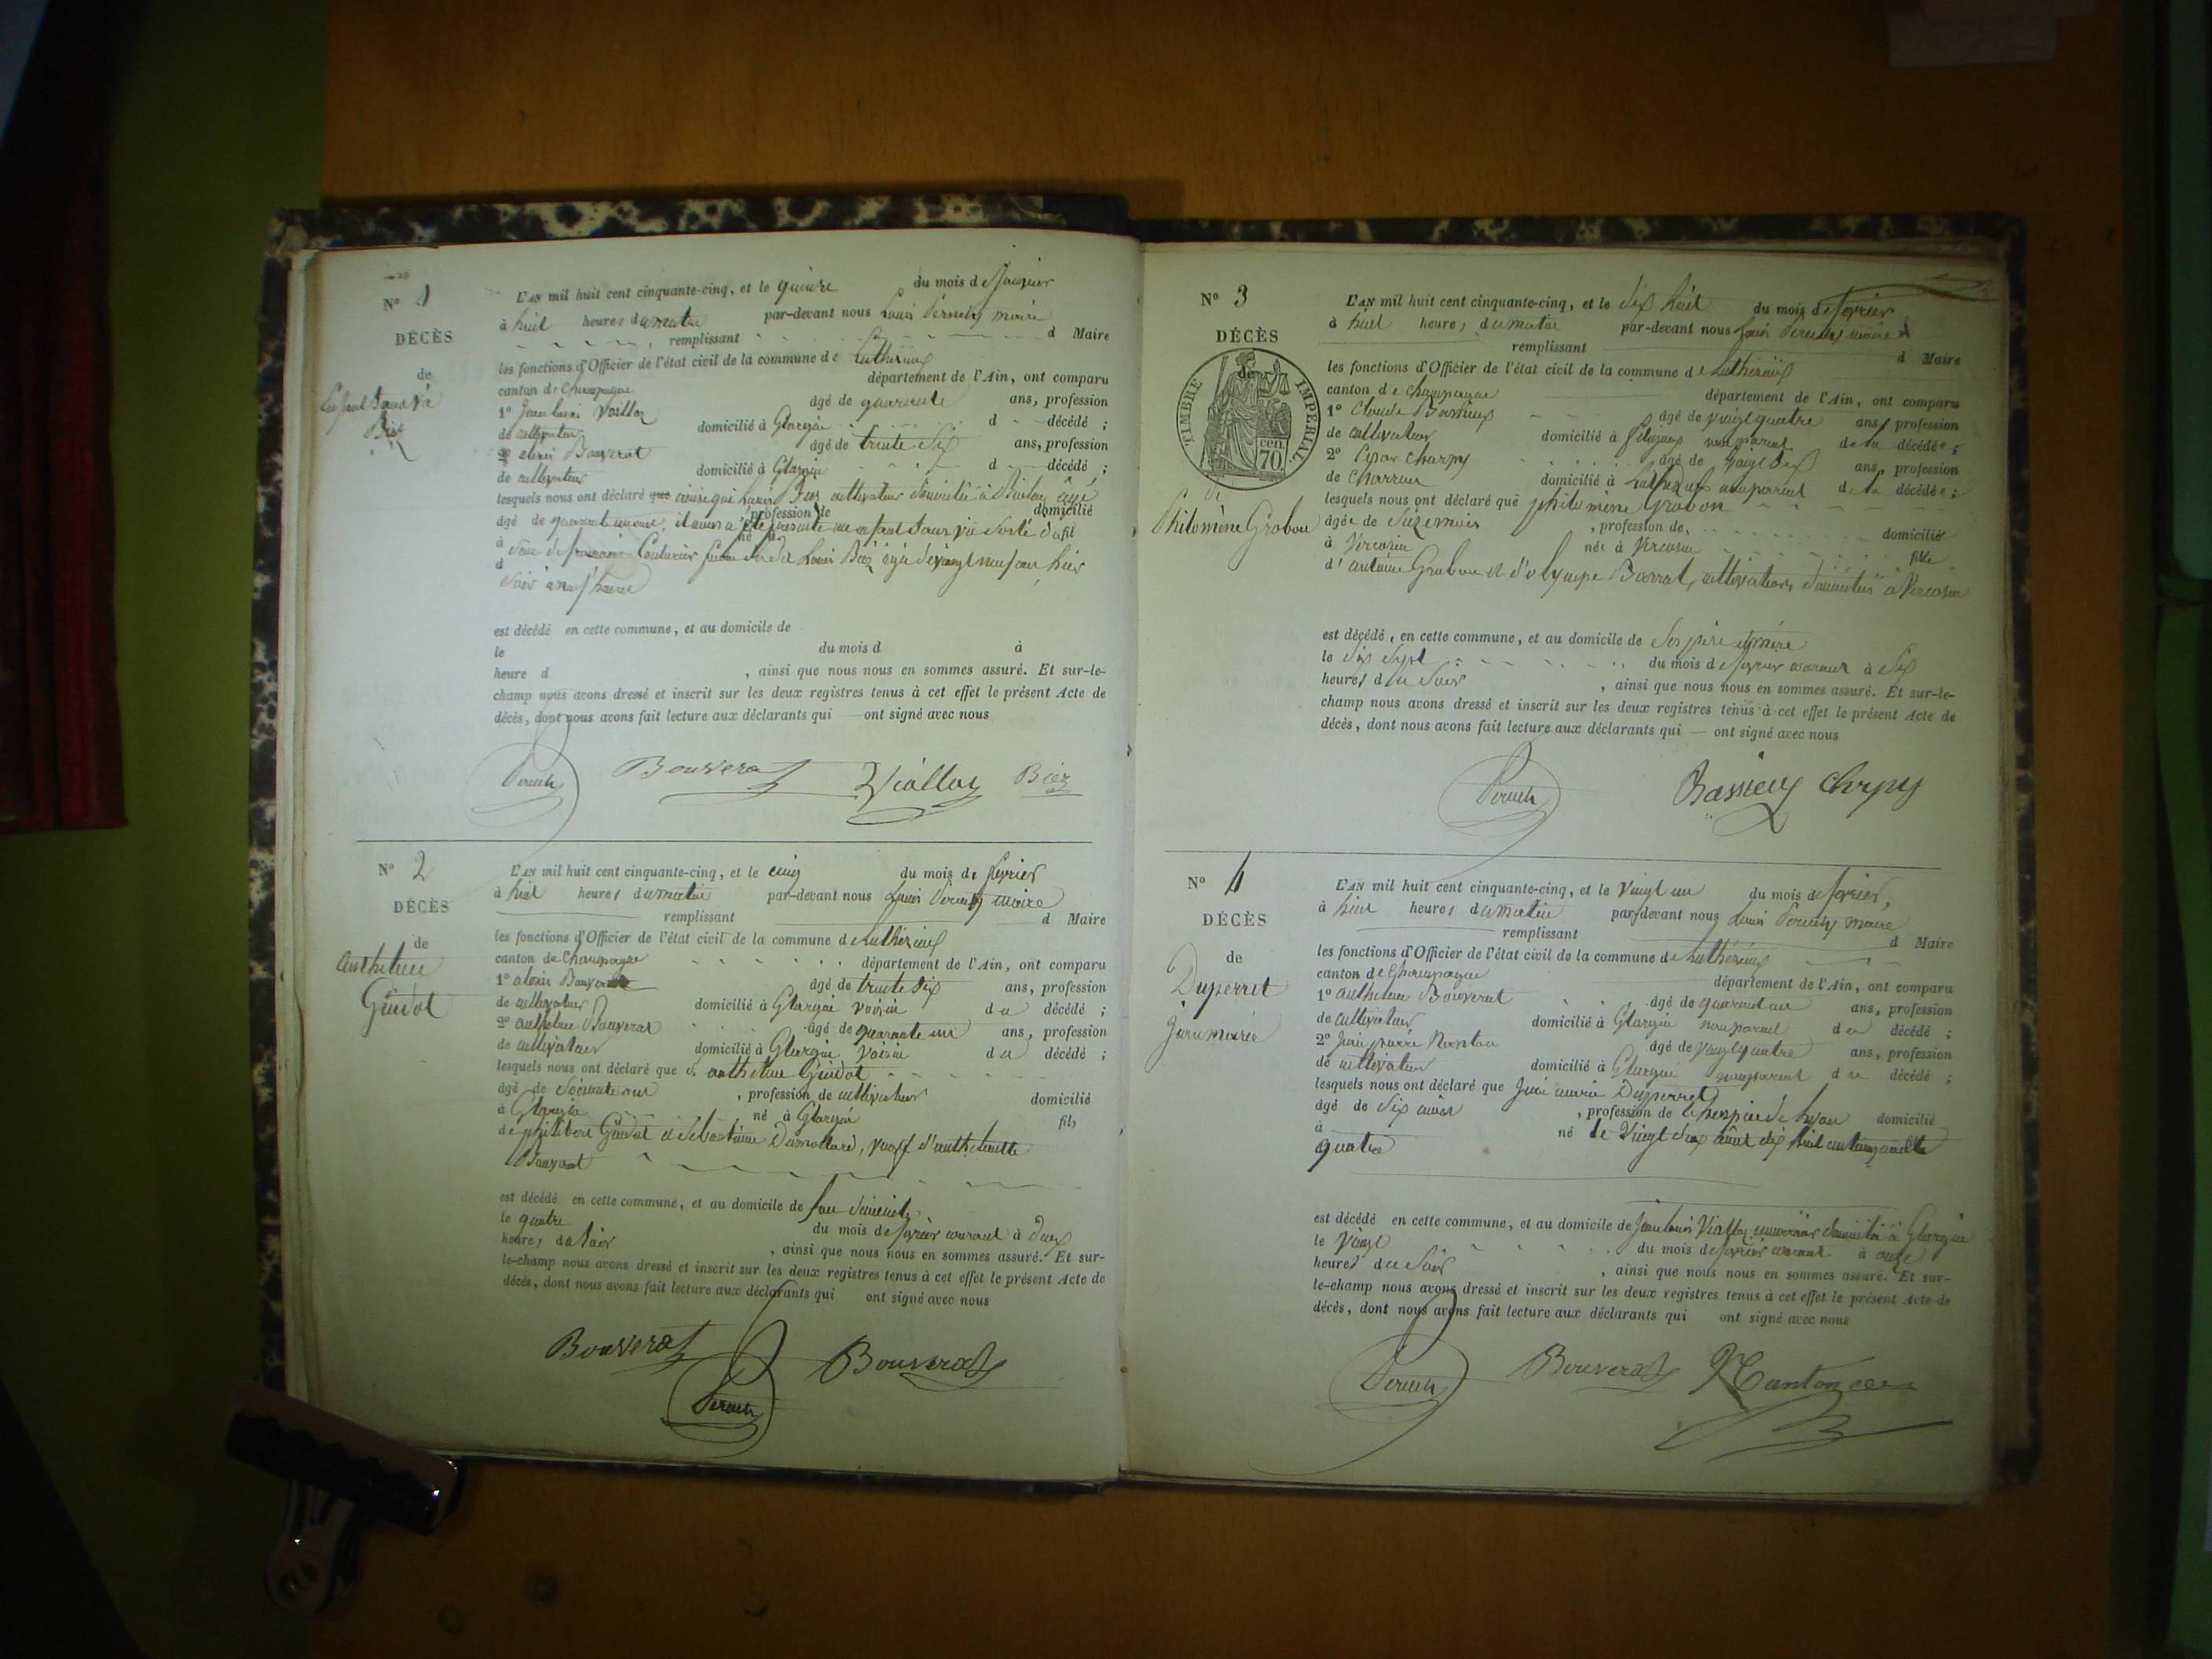 N° 1
DÉCÈS
de
Enfant Sans Vie
Biez
L'AN mil huit cent cinquante-cinq, et le quinze du mois de Janvier
à huit heures du matin par-devant nous Louis Perucly maire
remplissant d Maire
les fonctions d'Officier de l'état civil de la commune de Luthézieu
canton de Champagne département de l'Ain, ont comparu
1° Jean Louis Viallon âgé de quarante ans, profession
de cultivateur domicilié à Glargin d décédé ;
2° alexis Bouverat âgé de trente six ans, profession
de cultivateur domicilié à Glargin d décédé ;
lesquels nous ont déclaré que Louis Biez cultivateur domicilié à
âgé de profession de domicilié
à été présenté un enfant sans vie Sorti du
né
d Louis Biez âgée de vingt neuf ans hier
Soir à neuf heures
est décédé en cette commune, et au domicile de
le du mois d à
heure d , ainsi que nous nous en sommes assuré. Et sur-le-
champ nous avons dressé et inscrit sur les deux registres tenus à cet effet le présent Acte de
décès, dont nous avons fait lecture aux déclarants qui — ont signé avec nous
Bouverat Viallon Biez
N° 2
DÉCÈS
de
Anthelme
Guidot
L'AN mil huit cent cinquante-cinq, et le cinq du mois de février
à huit heures du matin par-devant nous Louis maire
remplissant d Maire
les fonctions d'Officier de l'état civil de la commune de Luthézieu
canton de Champagne département de l'Ain, ont comparu
1° alexis Bouverat âgé de trente six ans, profession
de cultivateur domicilié à Glargin voisin du décédé ;
2° anthelme Bouverat âgé de quarante un ans, profession
de cultivateur domicilié à Glargin voisin du décédé ;
lesquels nous ont déclaré que anthelme Guidot
âgé de Soixante , profession de cultivateur domicilié
à Glargin né à Glargin fils
de philibert Guidot et Sébastienne Dumollard, veuf d'anthelmette
Bouverat
est décédé en cette commune, et au domicile de Son domicile
le quatre du mois de février courant à deux
heures du Soir , ainsi que nous nous en sommes assuré. Et sur-
le-champ nous avons dressé et inscrit sur les deux registres tenus à cet effet le présent Acte de
décès, dont nous avons fait lecture aux déclarants qui ont signé avec nous
Bouverat Bouverat
N° 3
DÉCÈS
de
TIMBRE IMPERIAL
70 cen.
de
Philomène Grobon
L'AN mil huit cent cinquante-cinq, et le dix huit du mois de février
à huit heures du matin par-devant nous Louis maire
remplissant d Maire
les fonctions d'Officier de l'état civil de la commune de Luthézieu
canton de Champagne département de l'Ain, ont comparu
1° Claude âgé de vingt quatre ans, profession
de cultivateur domicilié à non parent de la décédée ;
2° César Charpy âgé de vingt Six ans, profession
de Charron domicilié à non parent de la décédée ;
lesquels nous ont déclaré que philomène Grobon
âgée de mois , profession de domicilié
à Vercosin née à Vercosin fille
d'antoine Grobon et d'olympe Barral, cultivateurs, domiciliés à Vercosin
est décédé, en cette commune, et au domicile de Ses père et mère
le dix Sept du mois de février courant à Six
heures du Soir , ainsi que nous nous en sommes assuré. Et sur-le-
champ nous avons dressé et inscrit sur les deux registres tenus à cet effet le présent Acte de
décès, dont nous avons fait lecture aux déclarants qui — ont signé avec nous
N° 4
DÉCÈS
de
Duperret
Jean marie
L'AN mil huit cent cinquante-cinq, et le Vingt un du mois de février,
à huit heures du matin par-devant nous Louis maire
remplissant d Maire
les fonctions d'Officier de l'état civil de la commune de Luthézieu
canton de Champagne département de l'Ain, ont comparu
1° anthelme Bouverat âgé de quarante un ans, profession
de cultivateur domicilié à Glargin non parent du décédé ;
2° Jean pierre âgé de vingt quatre ans, profession
de cultivateur domicilié à Glargin non parent du décédé ;
lesquels nous ont déclaré que Jean marie Duperret
âgé de Six mois , profession de l'hospice de Lyon domicilié
à né le Vingt deux août dix huit cent cinquante
quatre
est décédé en cette commune, et au domicile de Jean Louis Viallon domicilié à Glargin
le Vingt du mois de février courant à onze
heures du Soir , ainsi que nous nous en sommes assuré. Et sur-
le-champ nous avons dressé et inscrit sur les deux registres tenus à cet effet le présent Acte de
décès, dont nous avons fait lecture aux déclarants qui ont signé avec nous
Bouverat